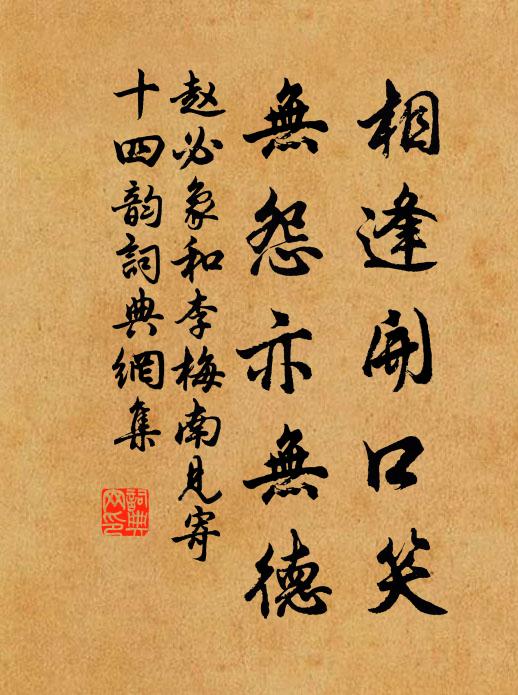 相逢開口笑
無怨亦無德
赵必象和李梅南見寄
十四韵詞典網集
詞典
网印